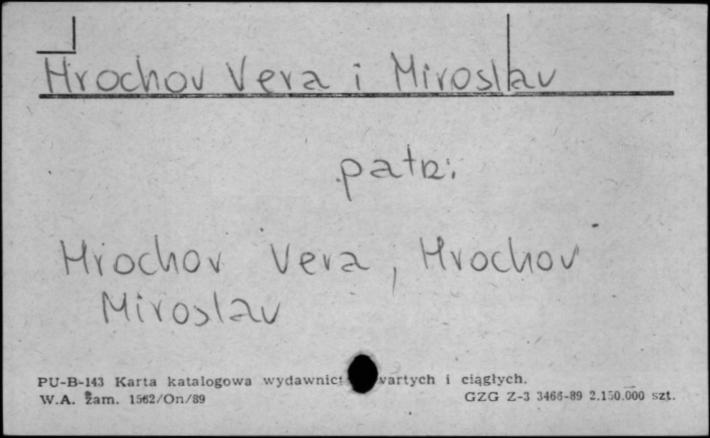 Hrochov Vera i Miroslav
patrz:
Hrochov Vera, Hrochov
Miroslav
PU-B-143 Karta katalogowa wydawnict wartych i ciągłych.
W.A. Zam. 1562/On/89 GZG Z-3 3466-89 2.150.000 szt.